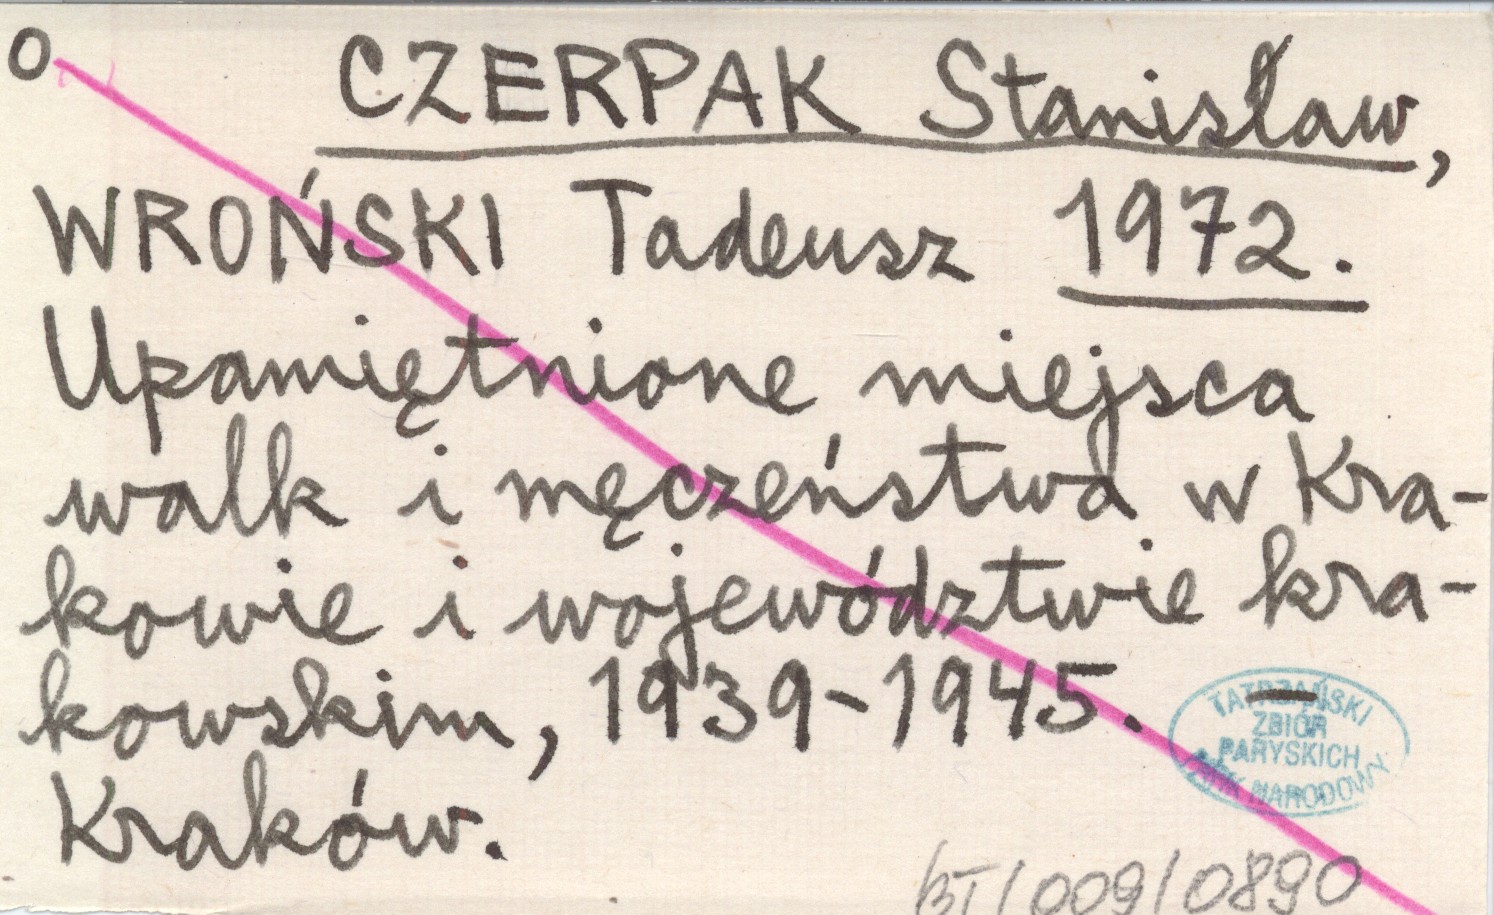 O CZERPAK Stanisław,
WROŃSKI Tadeusz 1972.
Upamiętnione miejsca
walk i męczeństwa w Kra-
kowie i województwie kra-
kowskim, 1939-1945.
Kraków.
TATRZAŃSKI
ZBIÓR
PARYSKICH
PARK NARODOWY
BT/009/0890